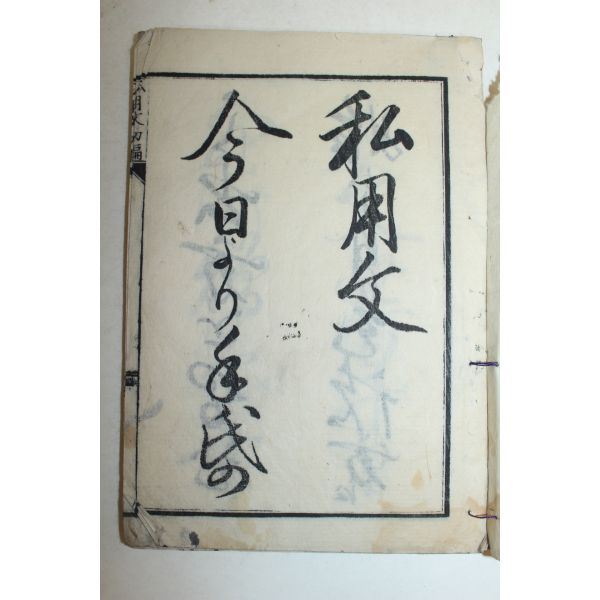 私用文
今日より手代の
私用文 初編